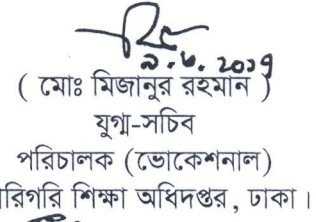 ৯.৮.২০১৭
( মোঃ মিজানুর রহমান )
যুগ্ম-সচিব
পরিচালক (ভোকেশনাল)
রিগরি শিক্ষা অধিদপ্তর, ঢাকা।